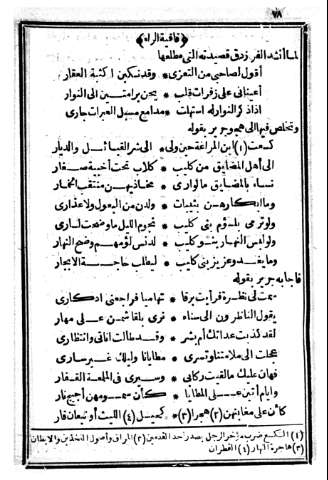 ٧٨
﴿قافية الراء﴾
لما أنشد الفرزدق قصيدته التي مطلعها
أقول لصاحبي من التعزي * وقد نكبن أكثبة العقار
أعيناني على زفرات قلب * يحن برامتين الى النوار
اذا ذكرت النوار له استهلت * مدامع مسبل العبرات جاري
وتخلص فيها الى هجو جرير بقوله
كسعت (١) ابن المراغة حين ولى * الى شر القبائل والديار
الى أهل المضايق من كليب * كلاب تحت أخبية صغار
نساء بالمضايق ما يوارى * مخازيهن منتقب الخمار
وما أبكارهن بثيبات * ولدن من البعول ولا عذارى
ولو ترمى بلؤم بني كليب * نجوم الليل ما وضحت لساري
ولو لبس النهار بنو كليب * لدنس لؤمهم وضح النهار
وما يغدو عزيز بني كليب * ليطلب حاجة الا بجار
فأجابه جرير بقوله
سمت لي نظرة فرأيت برقا * تهاميا فراجعني ادكاري
يقول الناظرون الى سناه * نرى بلقا شمسن على مهار
لقد كذبت عداتك أم بشر * وقد طالت أناتي وانتظاري
عجلت الى ملامتنا وتسرى * مطايانا وليلك غير ساري
فهان عليك ما لقيت ركابي * وسيري في الملمعة القفار
وأيام أتين على المطايا * كأن سمومهن أجيج نار
كأن على مغابنهن (٢) هجرا (٣) * كحيل (٤) الليت أو نبعان قار
(١) الكسع ضرب مؤخر الرجل بصدر احد القدمين (٢) المراق وأصول الفخذين والابطان
(٣) هاجرة النهار (٤) القطران